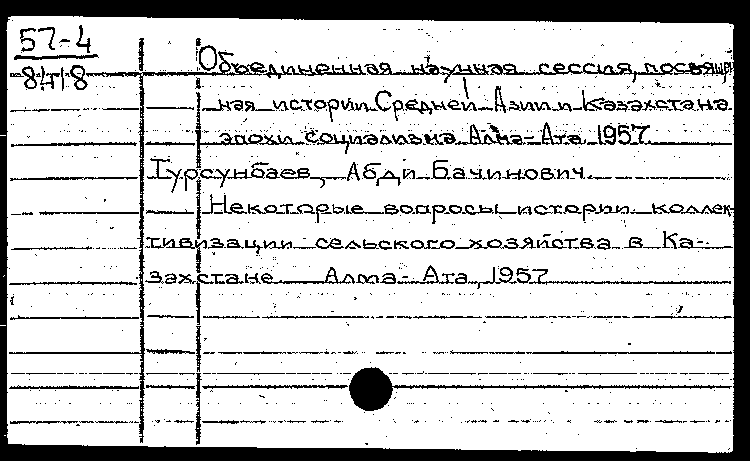 57-4
8418
Объединенная научная сессия, посвящен
ная истории Средней Азии и Казахстана
эпохи социализма Алма-Ата 1957.
Турсунбаев, Абди Бачинович.
Некоторые вопросы истории коллек
тивизации сельского хозяйства в Ка-
захстане Алма-Ата, 1957